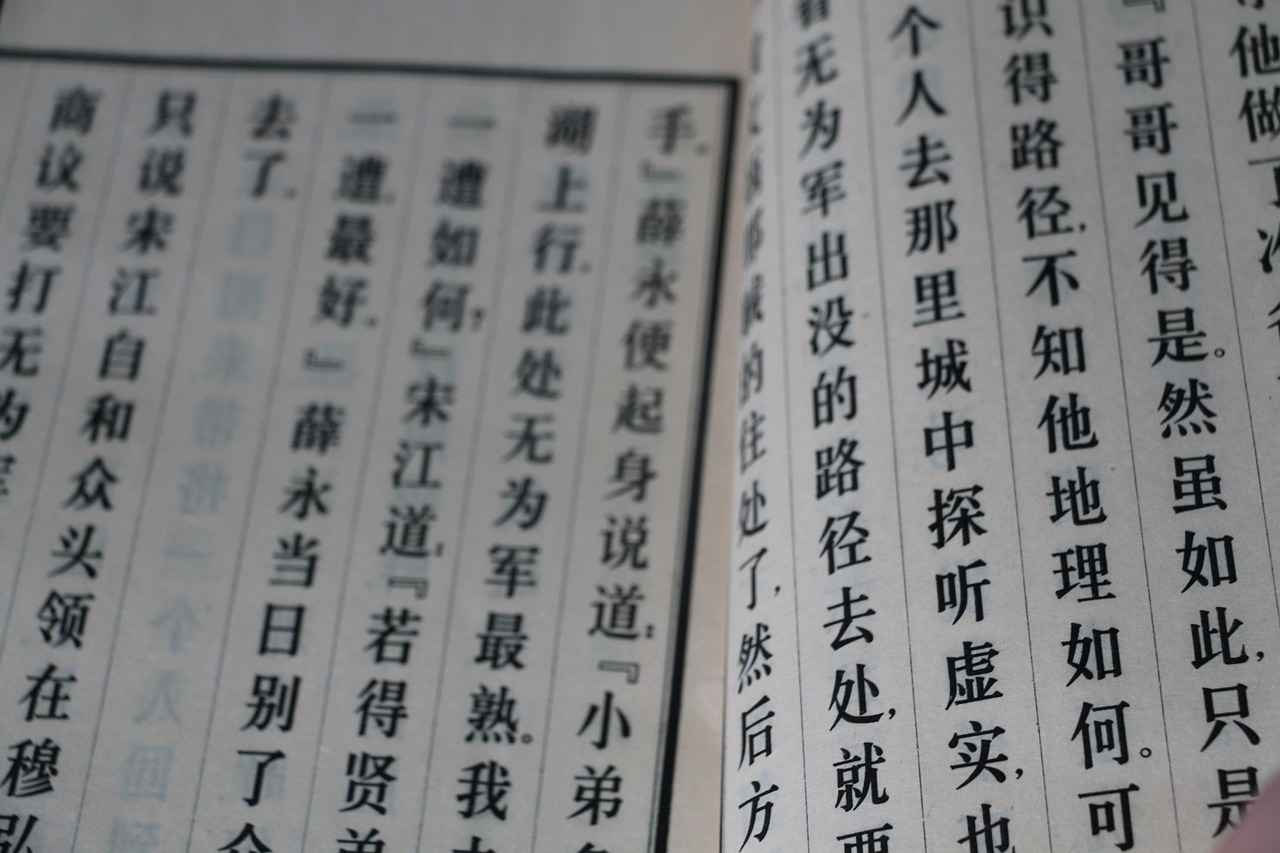 他做了
『哥哥见得是。然虽如此,只是
识得路径,不知他地理如何。可
个人去那里城中探听虚实,也
看无为军出没的路径去处,就要
的住处了,然后方
手。』薛永便起身说道:『小弟
湖上行。此处无为军最熟。我
一遭如何?』宋江道:『若得贤弟
一遭,最好。』薛永当日别了众
去了。
只说宋江自和众头领在穆弘
商议要打无为军